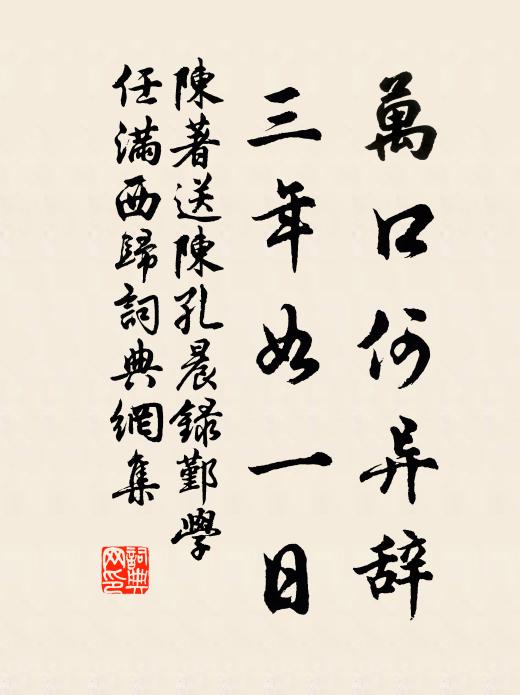 萬口何异辞
三年如一日
陳著送陳孔晨録鄞學
任滿西歸詞典網集
詞典
网印